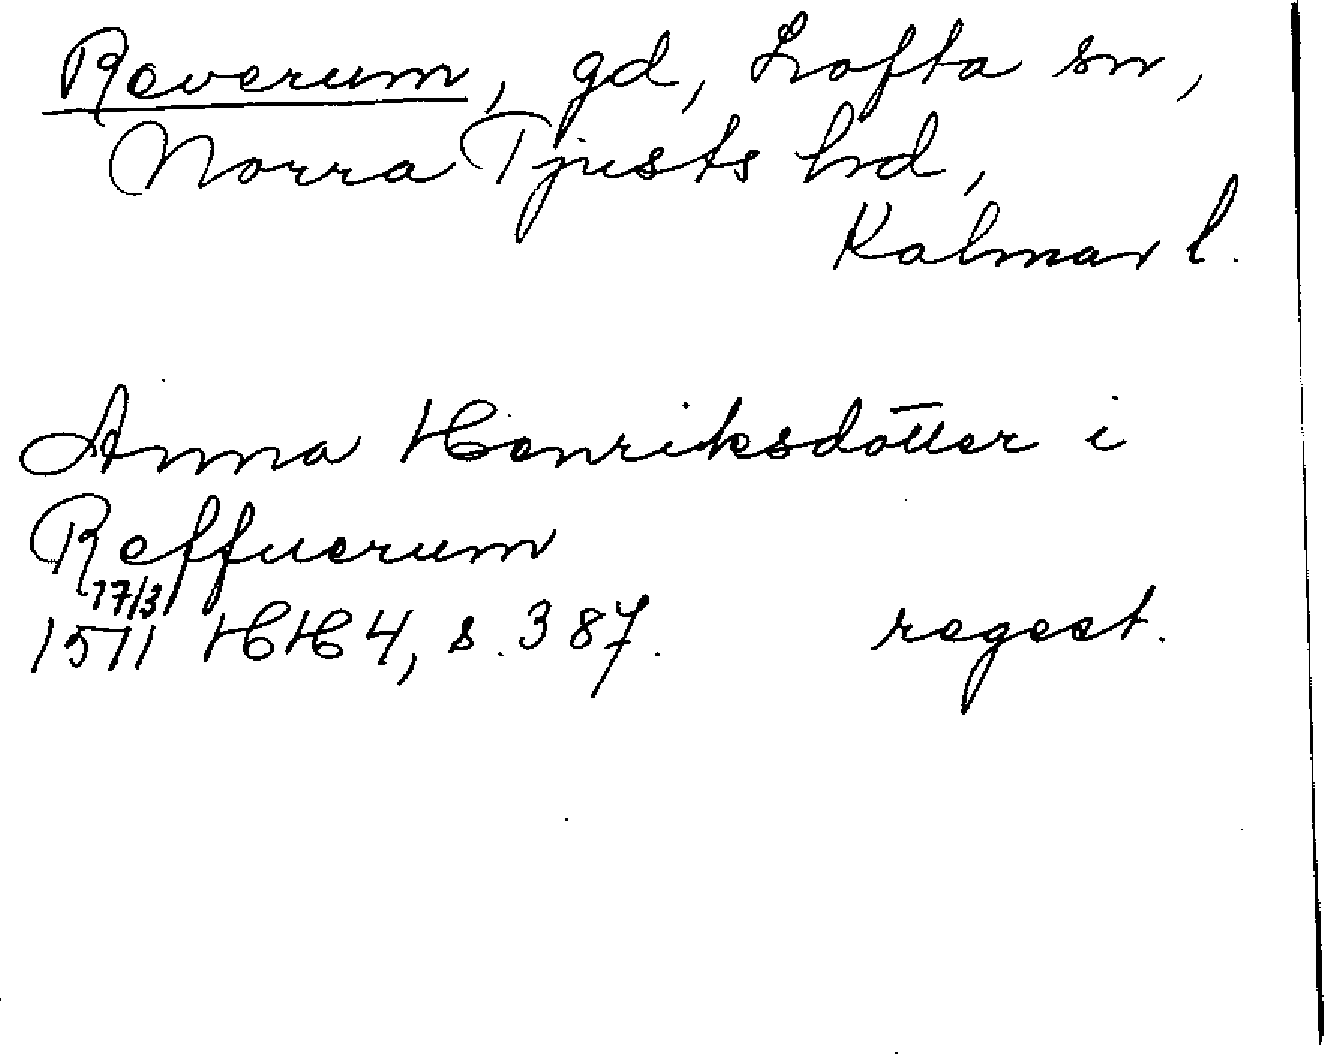 Reverum, gd, Lofta sn,
Norra Tjusts hd,
Kalmar l.
Anna Henriksdotter i
Reffuerum
17/3
1511 HH 4, s. 387. regest.